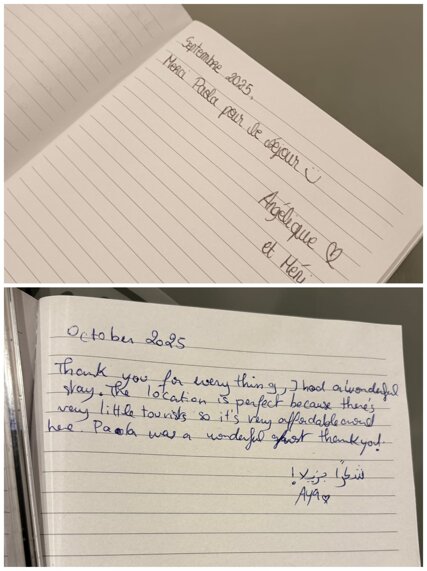 Septembre 2025,
Merci Paola pour le séjour
Angélique
et Méri
October 2025
Thank you for everything, I had a wonderful
stay. The location is perfect because there's
very little tourists so it's very affordable around
here. Paola was a wonderful thank you!
شكرًا جزيلا!
AYA